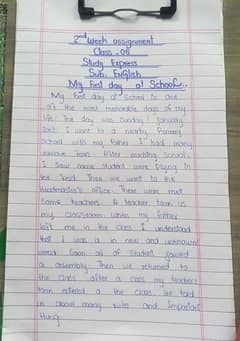 2nd Week assignment
Class - 06
Study Express
Sub: English
My First day at School.
My first day at School is one
of the most memorable days of my
life. The day was Sunday 1 January
I went to a nearby Primary
School with my father I had many
After reaching School,
I Saw Some Student were Playing in
the field. Then we went to the
headmaster's office. There were met
Some teachers. A teacher took us
my classroom. When my father
left me in the class I understand
that I was a in new and unknown
world. Soon all of student joined
a assembly. Then we returned to
the class. after a class my teachers
the class. He told
us about many rules and important
thing.